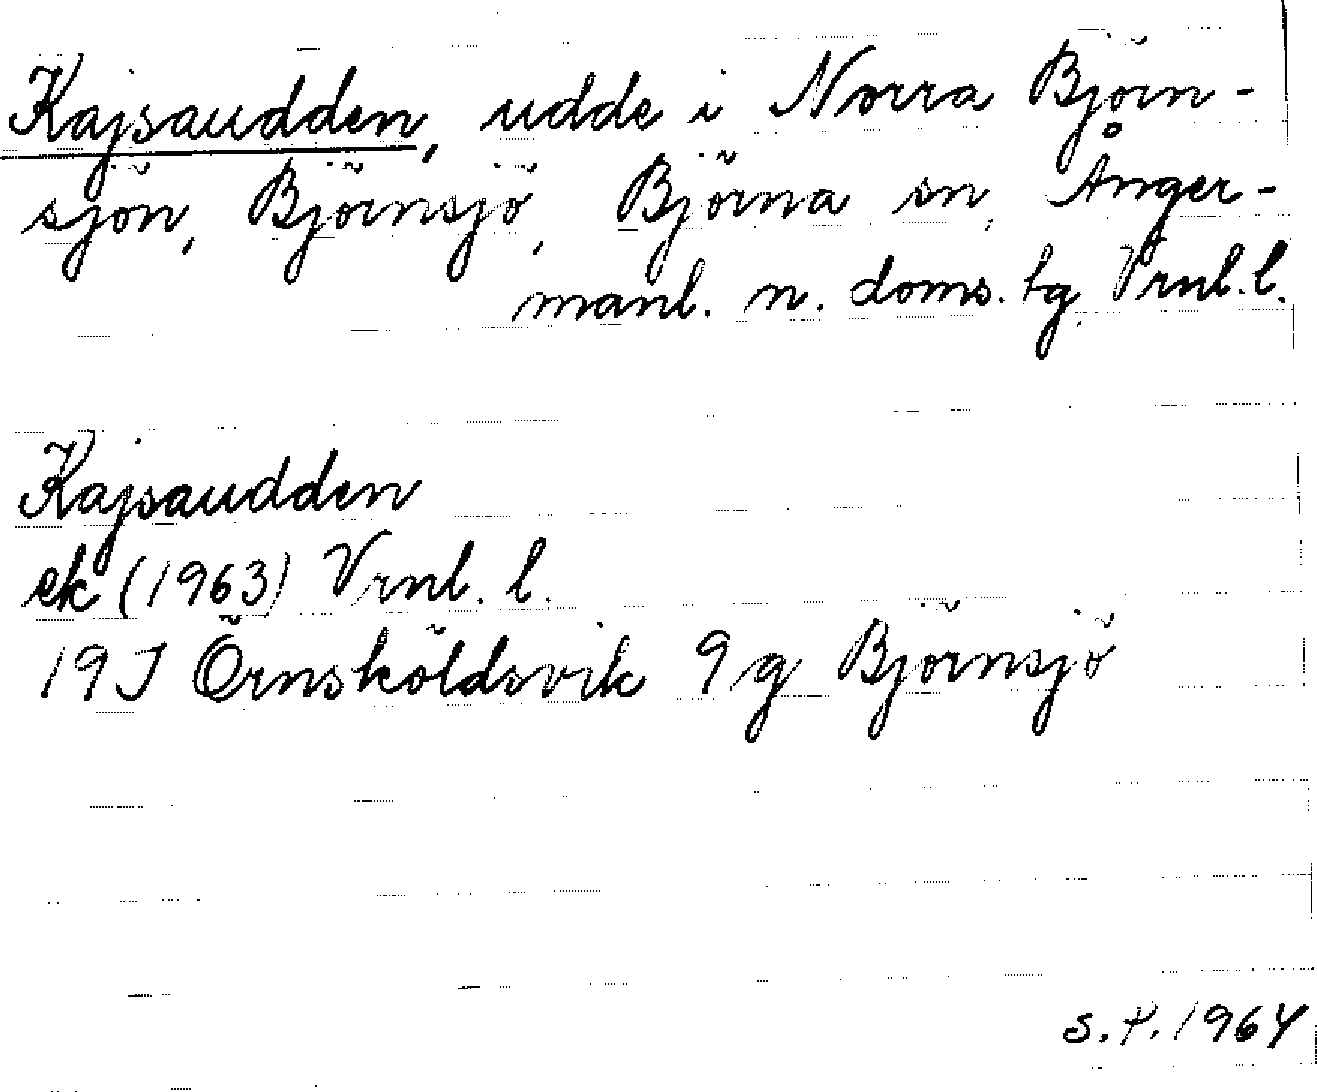 Kajsaudden, udde i Norra Björn-
sjön, Björnsjö, Björna sn, Ånger-
manl. n. doms. tg Vrnl. l.
Kajsaudden
ek (1963) Vrnl. l.
19J Örnsköldsvik 9g Björnsjö
S.P. 1964